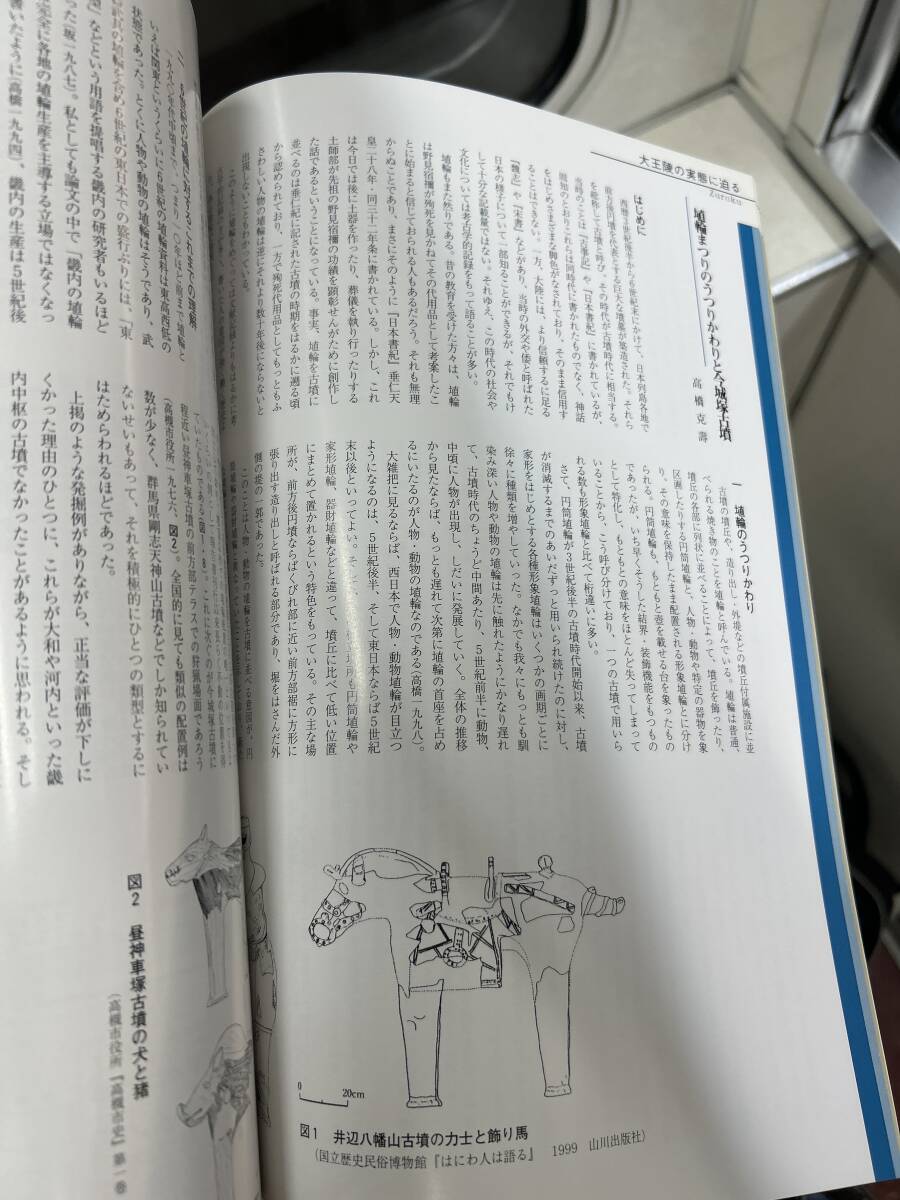 大王陵の実態に迫る
Zuroku
埴輪まつりのうつりかわりと今城塚古墳
高橋克壽
はじめに
西暦３世紀後半から６世紀末にかけて、日本列島各地で
前方後円墳を代表とする巨大な墳墓が築造された。それら
を総称して古墳と呼び、その時代が古墳時代に相当する。
当時のことは『古事記』や『日本書紀』に書かれているが、
周知のとおりこれらは同時代に書かれたものでなく、神話
をはじめさまざまな脚色がなされており、そのまま信用す
ることはできない。一方、大陸には、より信頼するに足る
『魏志』や『宋書』などがあり、当時の外交や倭と呼ばれた
日本の様子について一部知ることができるが、それでもけ
して十分な記載量ではない。それゆえ、この時代の社会や
文化については考古学的記録をもって語らせるほかない。
埴輪もまた然りである。昔の教育を受けた方々は、埴輪
は野見宿禰が殉死を見かねてその代用品として考案したこ
とに始まると信じておられる人もあるだろう。それも無理
からぬことであり、まさにそのように『日本書紀』垂仁天
皇二十八年・同三十二年条に書かれている。しかし、これ
は今日では後に土器を作ったり、葬儀を執り行ったりする
土師部が先祖の野見宿禰の功績を顕彰せんがために創作し
た話であるということになっている。事実、埴輪を古墳に
並べるのは垂仁紀に記された古墳の時期をはるかに遡る頃
から認められており、一方で殉死代用品としてもっともふ
さわしい人物の埴輪は逆にそれより数十年後にならないと
出現しないこともわかっている。
一　埴輪のうつりかわり
古墳の墳丘や、造り出し・外堤などの墳丘付属施設に並
べられる焼き物のことを埴輪と呼んでいる。埴輪は普通、
墳丘の各部に列状に並べることによって、墳丘を飾ったり、
区画したりする円筒埴輪と、人物・動物や特定の器物を象
り、その意味を保持したまま配置される形象埴輪とに分け
られる。円筒埴輪も、もともと壺を載せる台を象ったもの
であったが、いち早くそうした結界・装飾機能をもつもの
として特化し、もともとの意味をほとんど失ってしまって
いることから、こう呼び分けており、一つの古墳で用いら
れる数も形象埴輪と比べて桁違いに多い。
さて、円筒埴輪が３世紀後半の古墳時代開始以来、古墳
が消滅するまでのあいだずっと用いられ続けたのに対し、
家形をはじめとする各種形象埴輪はいくつかの画期ごとに
徐々に種類を増やしていった。なかでも我々にもっとも馴
染み深い人物や動物の埴輪は先に触れたようにかなり遅れ
て、古墳時代のちょうど中間あたり、５世紀前半に動物、
中頃に人物が出現し、しだいに発展していく。全体の推移
から見たならば、もっとも遅れて次第に埴輪の首座を占め
るにいたるのが人物・動物の埴輪なのである（高橋一九九八）。
大雑把に見るならば、西日本で人物・動物埴輪が目立つ
ようになるのは、５世紀後半、そして東日本ならば５世紀
末以後といってよい。
家形埴輪、器財埴輪などと違って、墳丘に比べて低い位置
にまとめて置かれるという特色をもっている。その主な場
所が、前方後円墳ならばくびれ部に近い前方部裾に方形に
張り出す造り出しと呼ばれる部分であり、堀をはさんだ外
側の堤の一郭であった。
このことは人物・動物の埴輪を古墳に並べる意図が、円
図1　井辺八幡山古墳の力士と飾り馬
（国立歴史民俗博物館『はにわ人は語る』　1999　山川出版社）
0　20cm
いるは関東というぐらいに６世紀の埴輪資料は東高西低の
状態であった。とくに人物や動物の埴輪はそうであり、武
などという用語を提唱する畿内の研究者もいるほど
った（坂一九八七）。私としても論文の中で「畿内の埴輪
完全に各地の埴輪生産を主導する立場ではなくなっ
書いたように（高橋一九九四）、畿内の生産は５世紀後
程近い昼神車塚古墳の前方部テラスでの狩猟場面であろう
（高槻市役所一九七六、図2）。全国的に見ても類似の配置例は
数が少なく、群馬県剛志天神山古墳などでしか知られてい
ないせいもあって、それを積極的にひとつの類型とするに
はためらわれるほどであった。
上掲のような発掘例がありながら、正当な評価が下しに
くかった理由のひとつに、これらが大和や河内といった畿
内中枢の古墳でなかったことがあるように思われる。そし
図2　昼神車塚古墳の犬と猪
（高槻市役所『高槻市史』第一巻